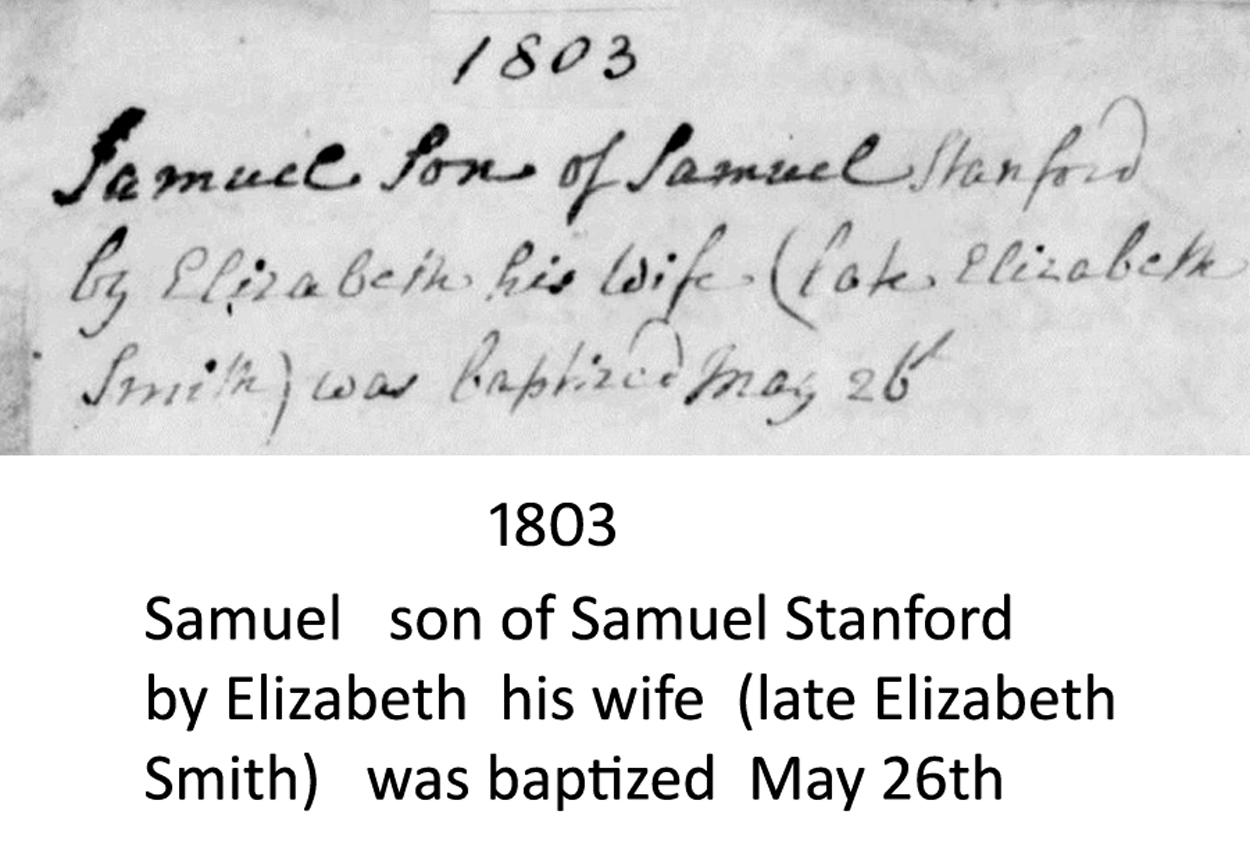 1803
Samuel Son of Samuel Stanford
by Elizabeth his wife (late Elizabeth
Smith) was baptized May 26
1803
Samuel son of Samuel Stanford
by Elizabeth his wife (late Elizabeth
Smith) was baptized May 26th